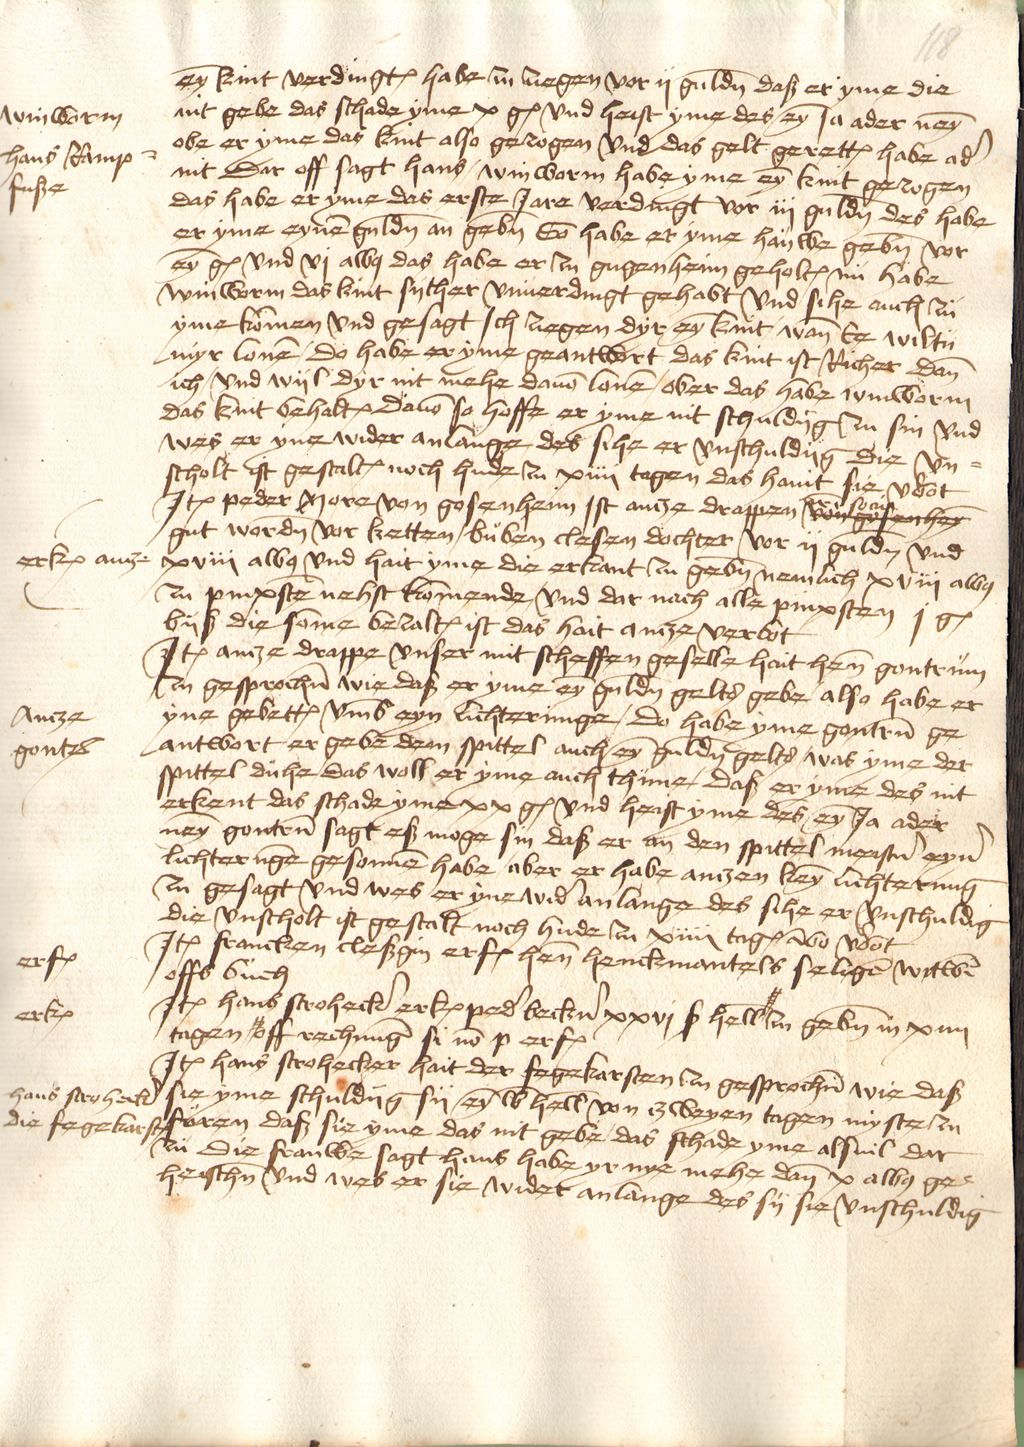 118
ey kint verdingt habe zu ziegen vor ij guldn daß er yme die
winworm
nit gebe das schade yme x g und heist yme des ey Ja ader ney
obe er yme das kint also gezogen und das gelt gerett habe ad
hans kamp-
fuße
nit Dar off sagt hans winworm habe yme ey kint gezogen
das habe er yme das erste Jare verdingt vor iij guldn des habe
er yme eynē guldn an gebn Eō habe er yme hauwe gebn vor
ey g und vj albq das habe er zu gugenheim geholt nu habe
winworm das kint syther unverdingt gehabt und sihe auch zu
yme komen und gesagt Ich ziegen dyr ey kint wan Ee wiltu
myr lonē do habe er yme geantwort das kint ist Richer dan
ich und wijl dyr nit mehe davō lonē ober das habe winworm
das kint behalt davō so hoffe er yme nit schuldig zu sin und
wes er yne wider anlange des sihe er unschuldig die un-
scholt ist gestalt noch hude zu xiiij tagen das hait sie vbot
It peder More von gosenheim Ist ancze drappen von gosenhey
gut wordn vor ketten buben clesen dochter vor ij guldn und
erk ancze
xviij albq und hait yme die erkant zu gebn nemlich xviij albq
zu pinxstē nehst komende und dar nach alle pinxsten j g
biß die some bezalt ist das hait ancze verbot
It ancze drappe unser mit scheffen geselle hait hen gontrum
zu gesprochn wie daß er yme ey guldn gelts gebe also habe er
Ancze
yne gebett umb eyn lichterunge do habe yme gontrū ge
gontrū
antwort er gebe dem spittel auch ey guldn gelts was yme der
spittel duhe das woll er yme auch thune daß er yme des nit
erkent das schade yme xx g und heist yme des ey Ja ader
ney gontrū sagt eß moge sin daß er an den spittel meistr eyn
lichterūge gesonnē habe aber er habe anczen key lichterung
zu gesagt und wes er yne wid anlange des sihe er unschuldig
die unscholt ist gestalt noch hude zu xiiij tag abo vbot
It francken cleßgin erf hen henckmantels selige witwē
erf
offs buch
It hans strohecker erk ped beckr xxvj ß hell zu gebn in xiiij
erk
tagen off rechnūg si nō p erf
It hans strohecker hait der fegekarsten zu gesprochn wie daß
hans strohecker
sie yme schuldig sy ey lb hell von zweyen tagen myste zu
die fegekarsten
furen daß sie yme das nit gebe das schade yme alsuil dar
zu die frauwe sagt hans habe yr nye mehe dan x albq ge-
heischn und wes er sie wider anlange des sy sie unschuldig